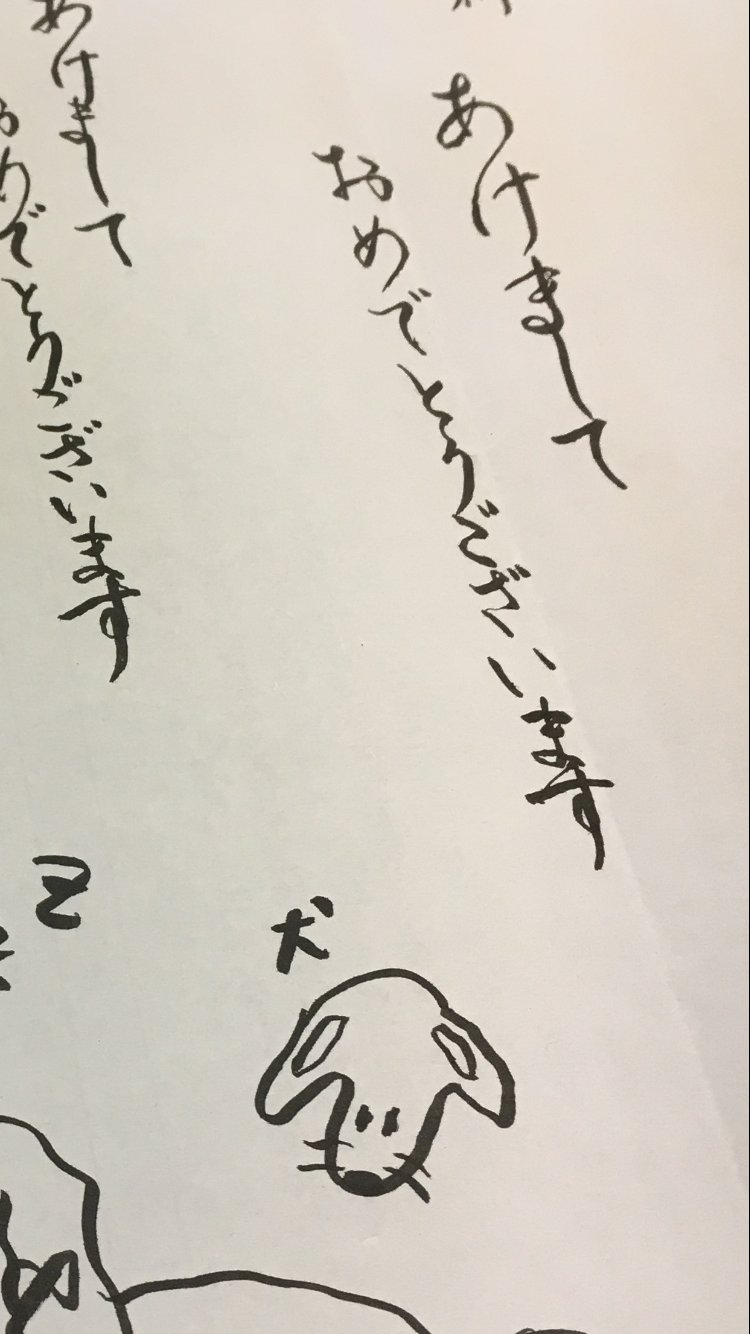 あけまして
おめでとうございます
あけまして
おめでとうございます
犬